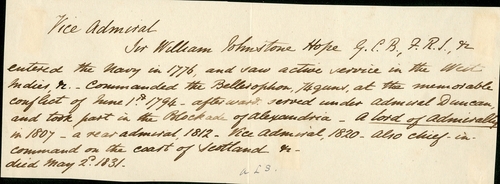 Vice Admiral
Sir William Johnstone Hope G.C.B, F.R.S., &c
entered the Navy in 1776, and saw active service in the West
Indies, &c. - Commanded the Bellerophon, 74 guns, at the memorable
conflict of June 1st 1794 - afterward served under Admiral Duncan,
and took part in the Blockade of Alexandria - A lord of Admiralty
in 1807 - a rear admiral, 1812 - Vice Admiral, 1820 - also chief in
command on the coast of Scotland &c -
died May 2d. 1831.
A L S.